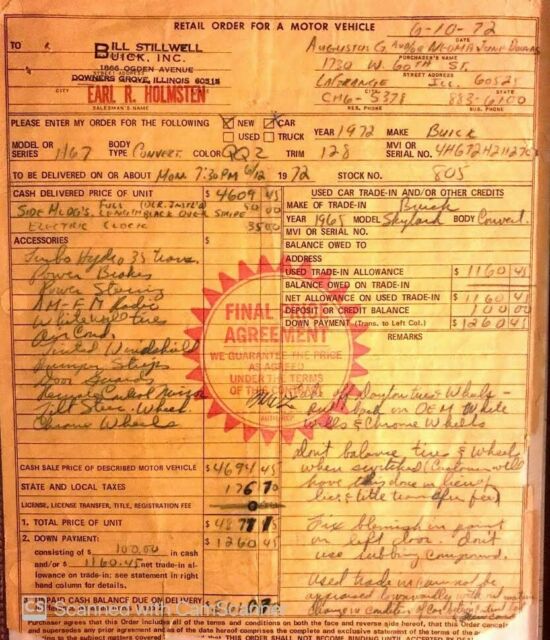 RETAIL ORDER FOR A MOTOR VEHICLE
6-10-72
DATE
TO
BILL STILLWELL
BUICK, INC.
1866 OGDEN AVENUE
STREET ADDRESS
DOWNERS GROVE, ILLINOIS 60515
CITY
EARL R. HOLMSTEN
SALESMAN'S NAME
PURCHASER'S NAME
1730 W. 60TH ST.
STREET ADDRESS
LAGRANGE ILL. 60525
CITY STATE
RES. PHONE BUS. PHONE
PLEASE ENTER MY ORDER FOR THE FOLLOWING
NEW CAR
USED TRUCK
YEAR 1972 MAKE Buick
MODEL OR SERIES 1167 BODY TYPE CONVERT. COLOR QQ2 TRIM 128
MVI OR SERIAL NO.
TO BE DELIVERED ON OR ABOUT MON. 7:30 PM 6/12 1972 STOCK NO. 805
CASH DELIVERED PRICE OF UNIT $ 4609 45
SIDE MLDG'S. FULL LENGTH BLACK OVER STRIPE 50 00
ELECTRIC CLOCK 35 00
ACCESSORIES $
Turbo Hydro 35 Trans.
Power Brakes
Power Steering
AM-FM Radio
Whitewall tires
Air Cond.
Tinted Windshield
Bumper Strips
Door Guards
Remote Control Mirror
Tilt Steer. Wheel
Chrome Wheels
USED CAR TRADE-IN AND/OR OTHER CREDITS
MAKE OF TRADE-IN Buick
YEAR 1965 MODEL Skylark BODY Convert.
MVI OR SERIAL NO.
BALANCE OWED TO
ADDRESS
USED TRADE-IN ALLOWANCE $ 1160 45
BALANCE OWED ON TRADE-IN
NET ALLOWANCE ON USED TRADE-IN $ 1160 45
DEPOSIT OR CREDIT BALANCE 100 00
DOWN PAYMENT (Trans. to Left Col.) $ 1260 45
REMARKS
FINAL PRICE
AGREEMENT
WE GUARANTEE THE PRICE
AS AGREED
UNDER THE TERMS
OF THIS
Take off Dayton tires & Wheels -
put back on OEM White
Walls & Chrome Wheels
don't balance tires & wheels
when switched (Customer will
have this done in lieu of
lic. & title transfer fee)
Fix blemish in paint
on left door. don't
use rubbing compound.
Used trade in
CASH SALE PRICE OF DESCRIBED MOTOR VEHICLE $ 4694 45
STATE AND LOCAL TAXES 176 70
LICENSE, LICENSE TRANSFER, TITLE, REGISTRATION FEE
1. TOTAL PRICE $ 4871 15
2. DOWN PAYMENT: $ 1260 45
consisting of $ 100.00 in cash
and/or $ 1160.45 net trade-in al-
lowance on trade-in: see statement in right
hand column for details.
CASH BALANCE DUE ON DELIVERY
CS Scanned with CamScanner
Purchaser agrees that this order includes all of the terms and conditions on both the face and reverse side hereof, that this Order
and supersedes any prior agreement and as of the date hereof comprises the complete and exclusive statement of the terms of the